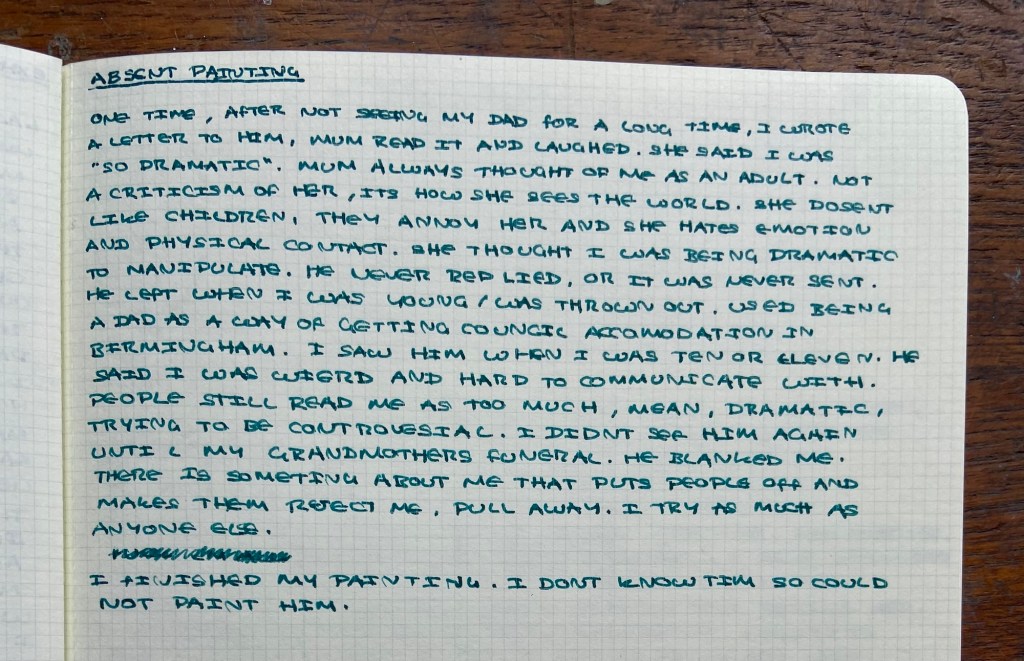 ABSENT PAINTING
ONE TIME, AFTER NOT SEEING MY DAD FOR A LONG TIME, I WROTE
A LETTER TO HIM, MUM READ IT AND LAUGHED. SHE SAID I WAS
"SO DRAMATIC". MUM ALWAYS THOUGHT OF ME AS AN ADULT. NOT
A CRITICISM OF HER, ITS HOW SHE SEES THE WORLD. SHE DOSENT
LIKE CHILDREN, THEY ANNOY HER AND SHE HATES EMOTION
AND PHYSICAL CONTACT. SHE THOUGHT I WAS BEING DRAMATIC
TO MANIPULATE. HE NEVER REPLIED, OR IT WAS NEVER SENT.
HE LEFT WHEN I WAS YOUNG / WAS THROWN OUT. USED BEING
A DAD AS A WAY OF GETTING COUNCIL ACCOMODATION IN
BIRMINGHAM. I SAW HIM WHEN I WAS TEN OR ELEVEN. HE
SAID I WAS WIERD AND HARD TO COMMUNICATE WITH.
PEOPLE STILL READ ME AS TOO MUCH, MEAN, DRAMATIC,
TRYING TO BE CONTROLESIAL. I DIDNT SEE HIM AGAIN
UNTIL MY GRANDMOTHERS FUNERAL. HE BLANKED ME.
THERE IS SOMETING ABOUT ME THAT PUTS PEOPLE OFF AND
MAKES THEM REJECT ME, PULL AWAY. I TRY AS MUCH AS
ANYONE ELSE.
I FINISHED MY PAINTING. I DONT KNOW TIM SO COULD
NOT PAINT HIM.